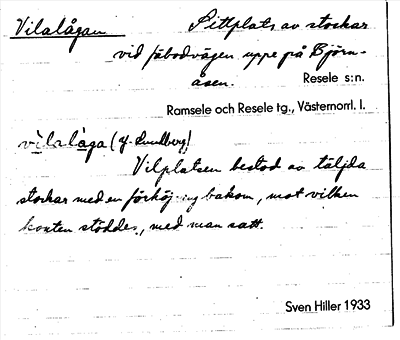 Vilalågan Sittplats av stockar
vid fäbodvägen uppe på Björn-
åsen. Resele s:n.
Ramsele och Resele tg., Västernorrl. l.
vìlalåga (J. Lundberg)
Vilplatsen bestod av täljda
stockar med en förhöjning bakom, mot vilken
konten stöddes, med man satt.
Sven Hiller 1933